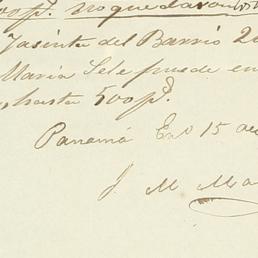 00 p.s no quedaron
Jacinta del Barrio 2
Maria Lele puede en
hasta 500 p.s
Panamá En.o 15 de
J. M. Ma